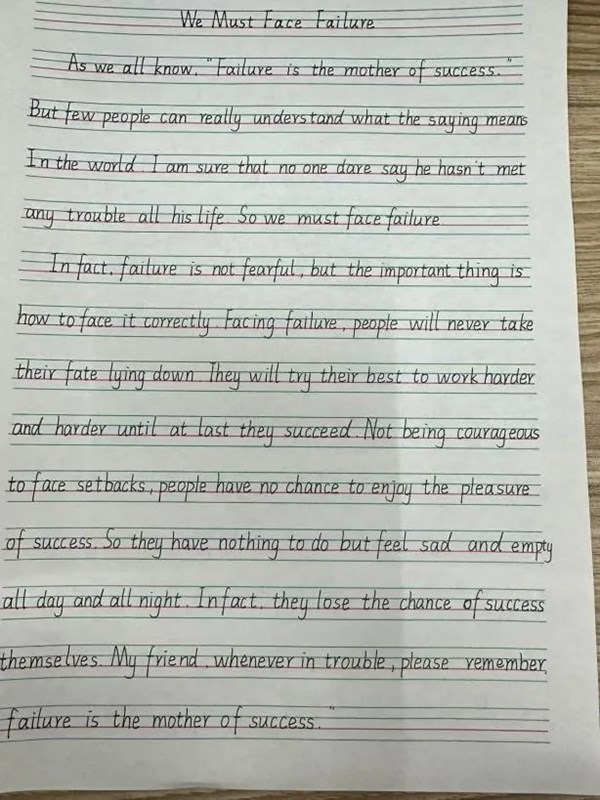 We Must Face Failure
As we all know, "Failure is the mother of success."
But few people can really understand what the saying means
In the world. I am sure that no one dare say he hasn't met
any trouble all his life. So we must face failure
In fact, failure is not fearful, but the important thing is
how to face it correctly. Facing failure, people will never take
their fate lying down. They will try their best to work harder
and harder until at last they succeed. Not being courageous
to face setbacks, people have no chance to enjoy the pleasure
of success. So they have nothing to do but feel sad and empty
all day and all night. In fact, they lose the chance of success
themselves. My friend, whenever in trouble, please remember,
failure is the mother of success."